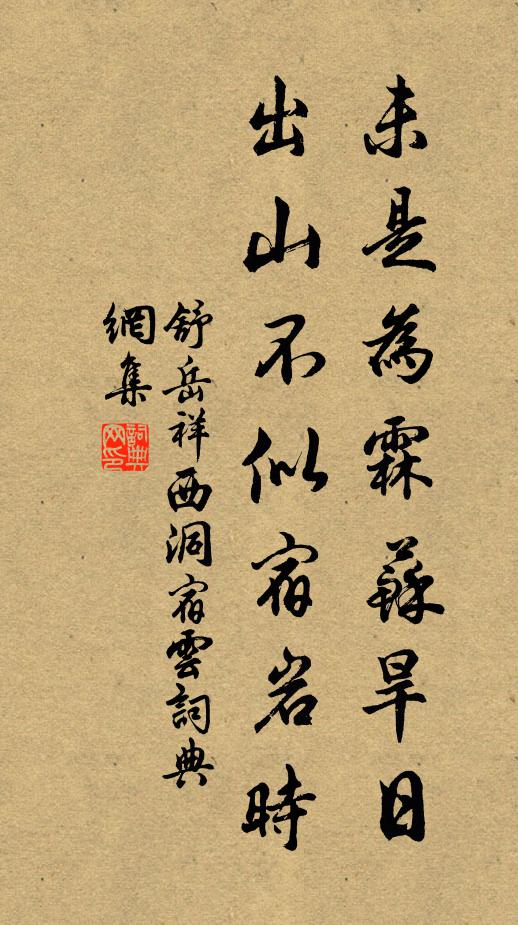 未是為霖蘇旱日
出山不似宿岩時
舒岳祥西洞宿雲詞典
網集
詞典網印